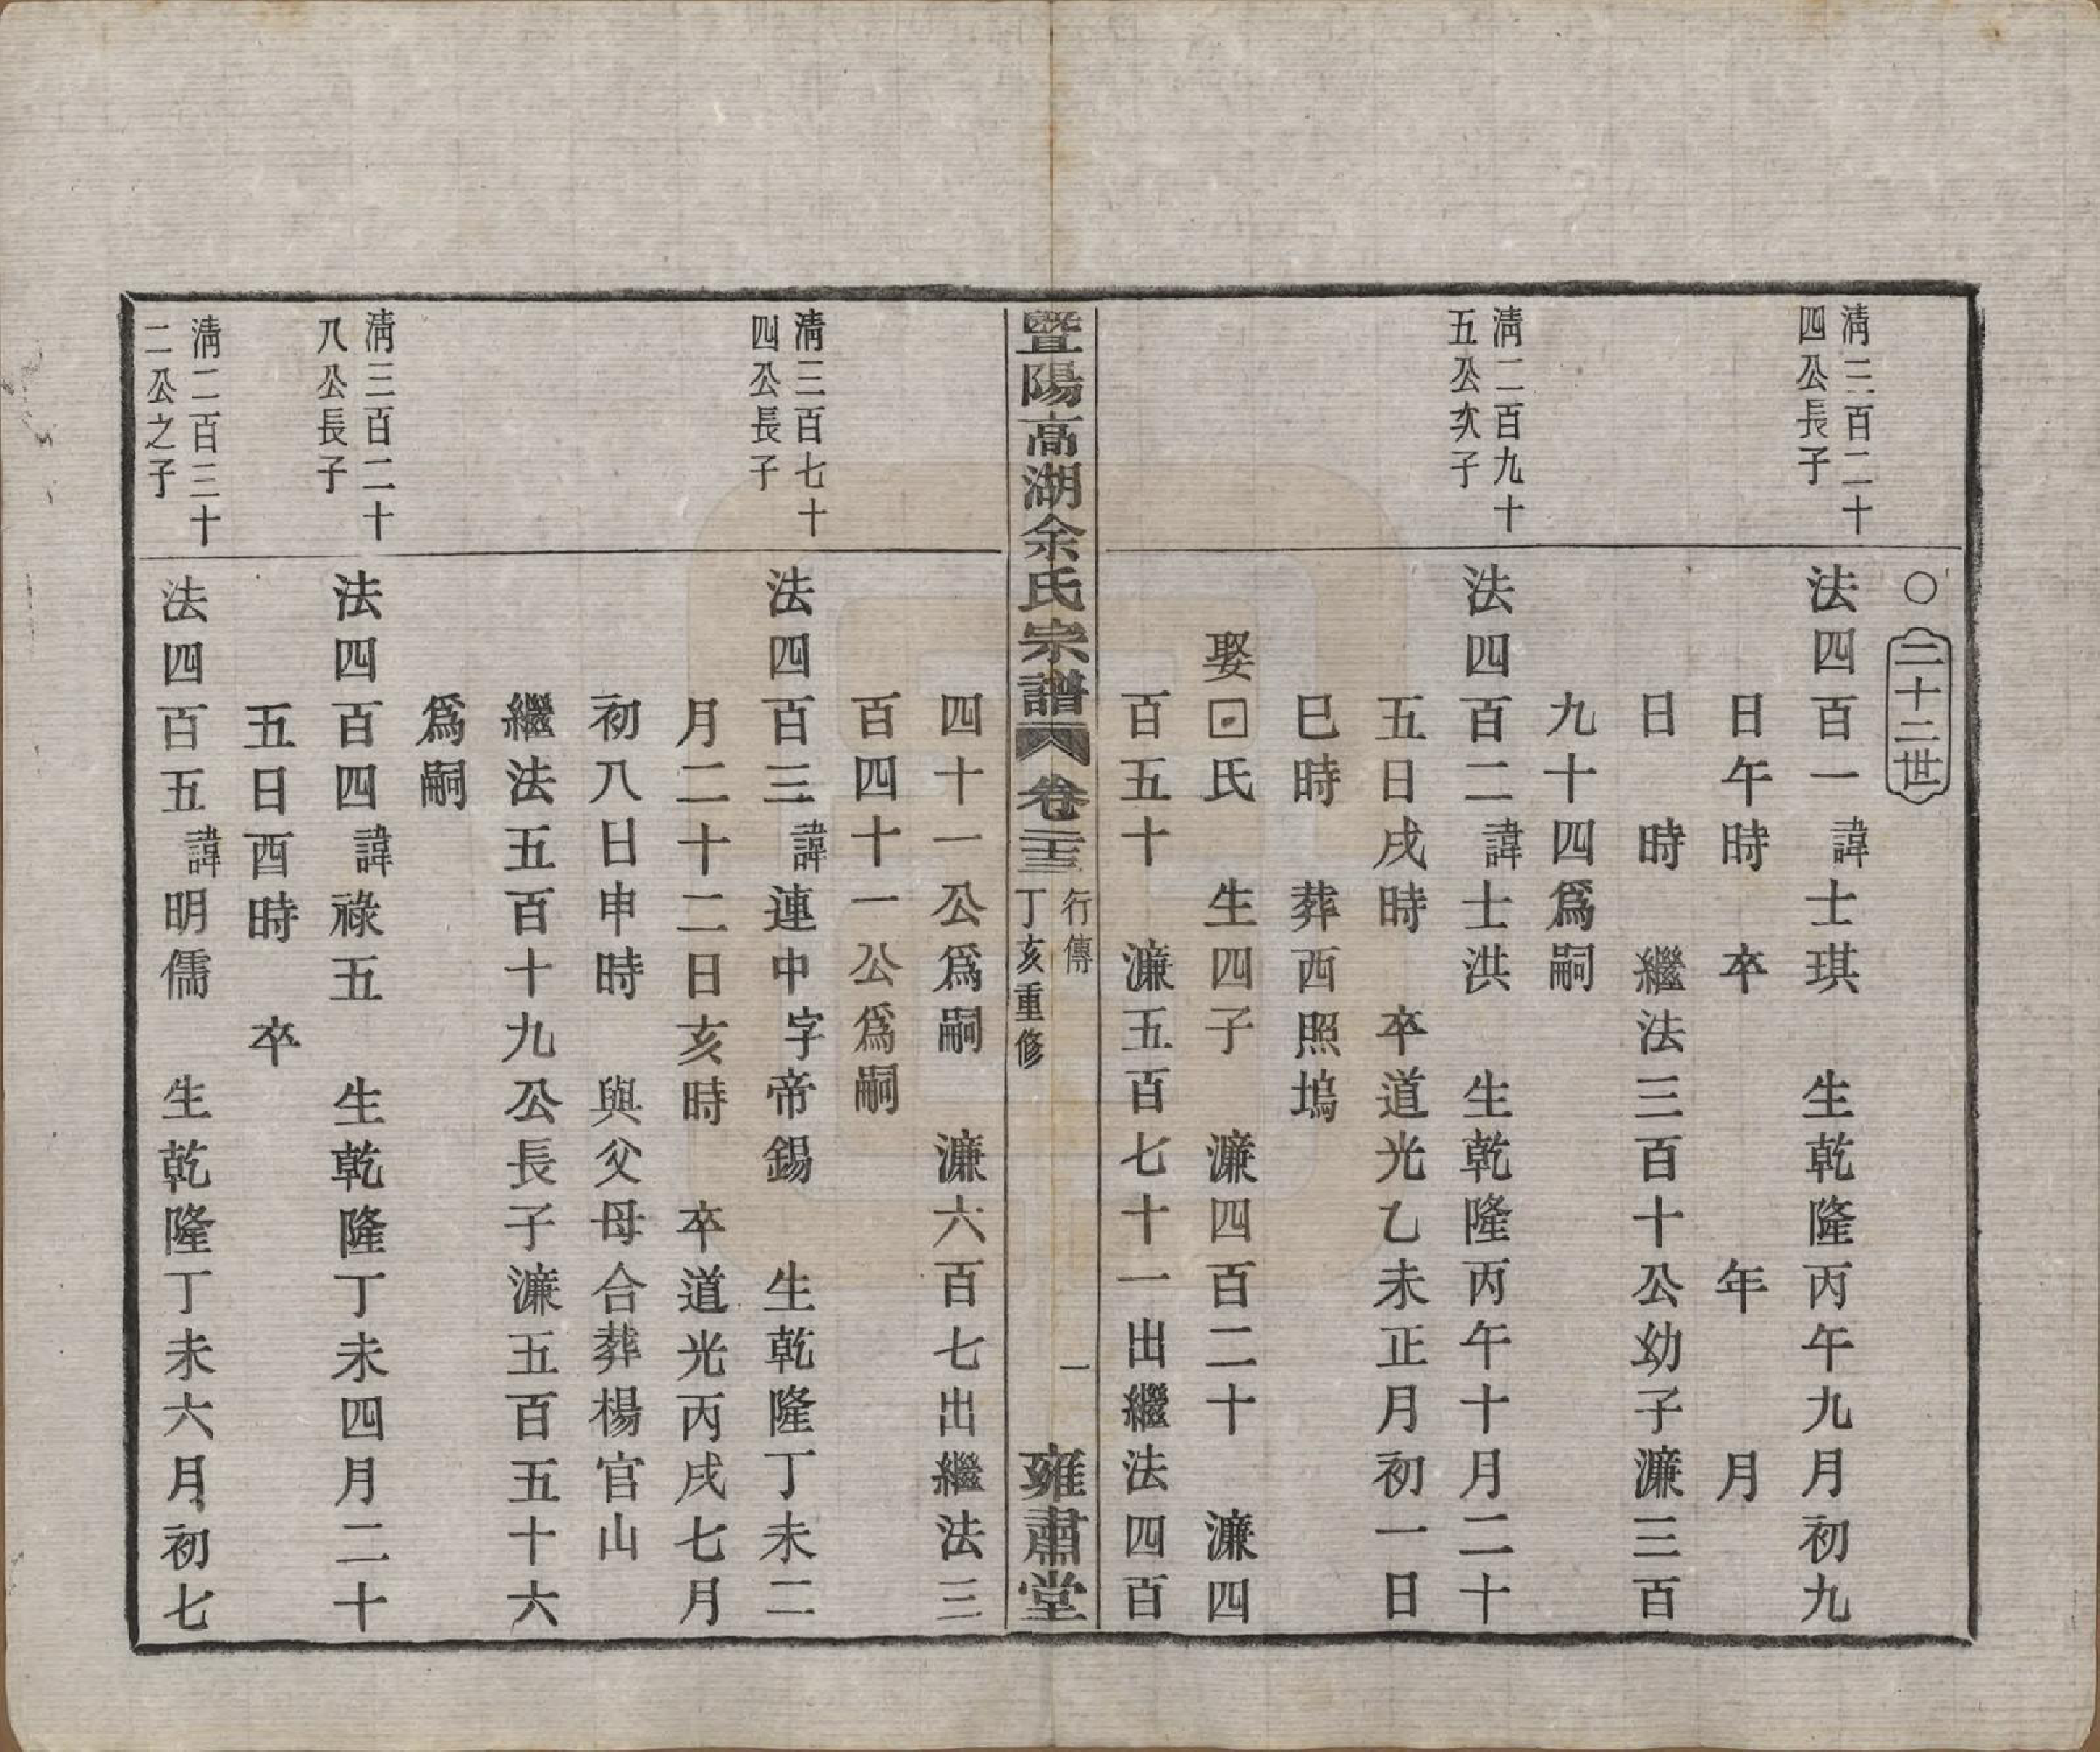 ○二十二世
清三百二十
四公長子
法四百一諱士琪 生乾隆丙午九月初九
日午時 卒 年 月
日 時 繼法三百十公幼子濂三百
九十四爲嗣
清二百九十
五公次子
法四百二諱士洪 生乾隆丙午十月二十
五日戌時 卒道光乙未正月初一日
巳時 葬西照塢
娶囗氏 生四子 濂四百二十 濂四
百五十 濂五百七十一出繼法四百
暨陽高湖余氏宗譜
卷二十三
行傳
丁亥重修
一
雍肅堂
四十一公爲嗣 濂六百七出繼法三
百四十一公爲嗣
清三百七十
四公長子
法四百三諱連中字帝錫 生乾隆丁未二
月二十二日亥時 卒道光丙戌七月
初八日申時 與父母合葬楊官山
繼法五百十九公長子濂五百五十六
爲嗣
清三百二十
八公長子
法四百四諱祿五 生乾隆丁未四月二十
五日酉時 卒
清二百三十
二公之子
法四百五諱明儒 生乾隆丁未六月初七